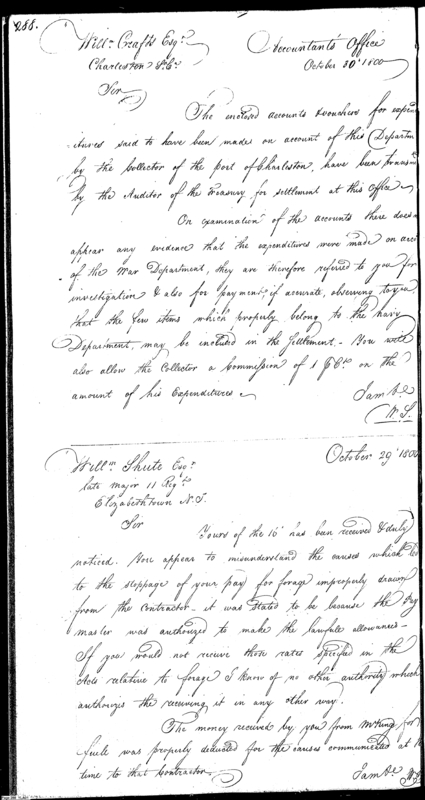 288.
Will^m Crafts Esq^r
Accountants Office
Charleston S. C^a
October 30^t 1800
Sir
The enclosed accounts & vouchers for expen
itures said to have been made on account of this Departm
by the Collector of the port of Charleston, have been transm
by the Auditor of the Treasury for settlement at this Office
On examination of the accounts there does n
appear any evidence that the expenditures were made on acco
of the War Department, they are therefore referred to you for
investigation & also for payment, if accurate, observing to you
that the few items which properly belong to the Navy
Department, may be included in the Settlement. - You will
also allow the Collector a Commission of 1 P C^t on the
amount of his Expenditures
I am &c
W. S.
October 29^t 1800
Will^m Shute Esq^r
late Major 11 Reg^t
Elizabethtown N. J.
Sir
Yours of the 16^t has been received & duly
noticed. You appear to misunderstand the causes which led
to the stoppage of your pay for forage improperly drawn
from the Contractor - it was stated to be because the Pay
master was authorized to make the lawfull allowances -
If you would not receive those rates specified in the
Acts relative to forage I know of no other authority which
authorizes the receiving it in any other way.
The money received by you from for
fuell was properly deducted for the causes communicated at
time to that Contractor
I am &c